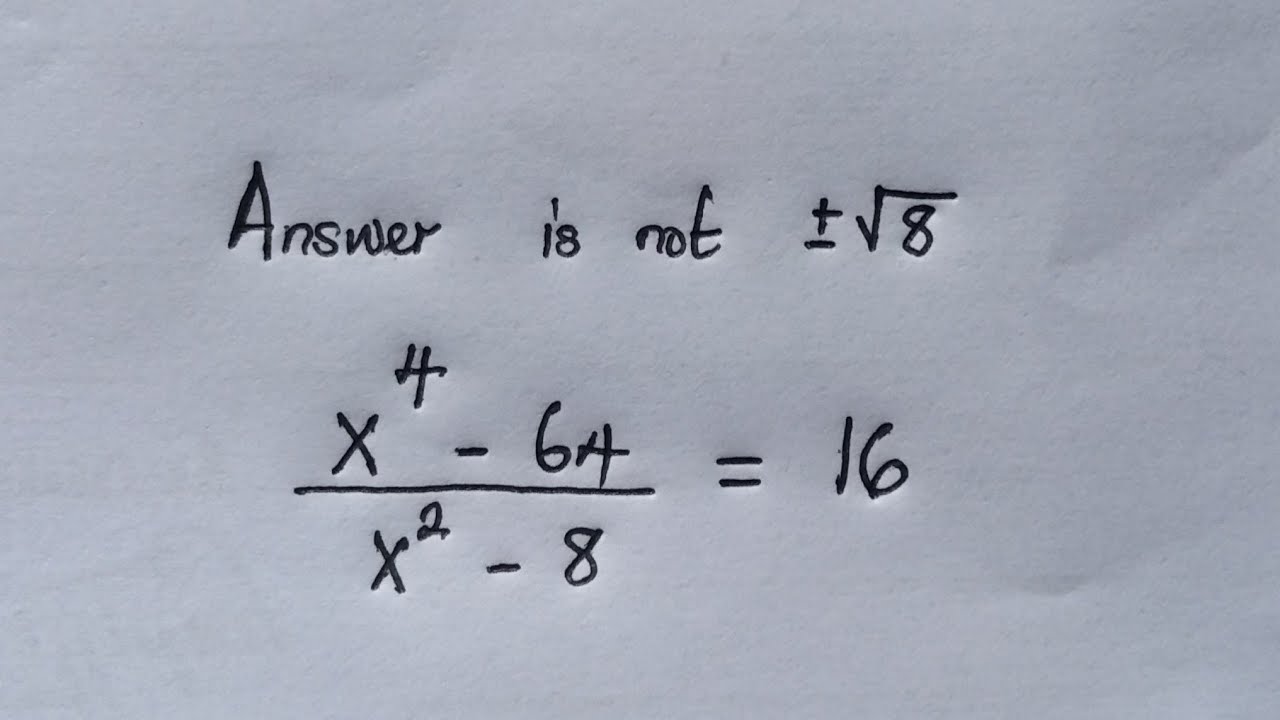 Answer is not ±√8
x⁴ - 64 / x² - 8 = 16